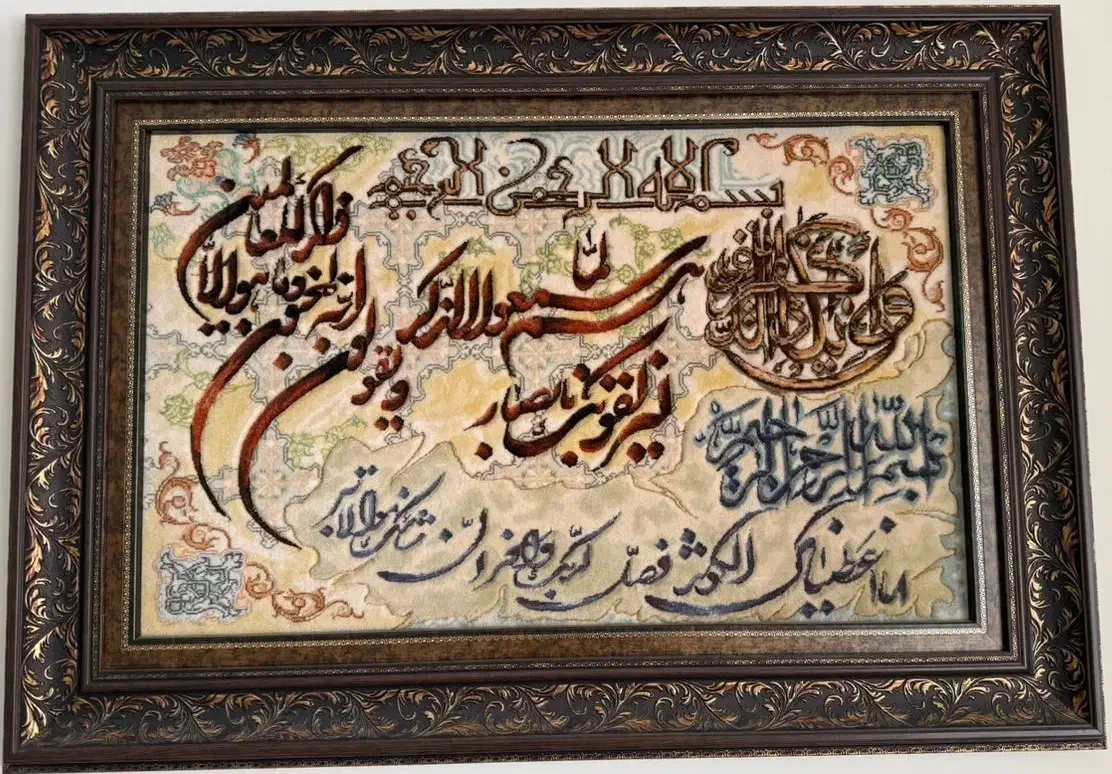 بسم الله الرحمن الرحیم
وان یکاد الذین کفروا
لیزلقونک بابصارهم لما سمعوا الذکر
ویقولون انه لمجنون وما هو الا ذکر للعالمین
بسم الله الرحمن الرحیم
انا اعطیناک الکوثر فصل لربک وانحر ان شانئک هو الابتر